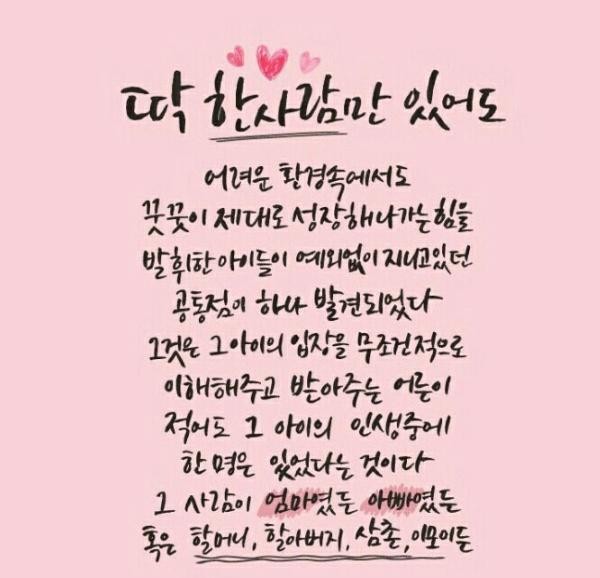 딱 한사람만 있어도
어려운 환경속에서도
꿋꿋이 제대로 성장해나가는힘을
발휘한아이들이 예외없이지니고있던
공통점이 하나 발견되었다
그것은 그아이의 입장을 무조건적으로
이해해주고 받아주는 어른이
적어도 그 아이의 인생중에
한명은 있었다는 것이다
그 사람이 엄마였든 아빠였든
혹은 할머니, 할아버지, 삼촌, 이모이든